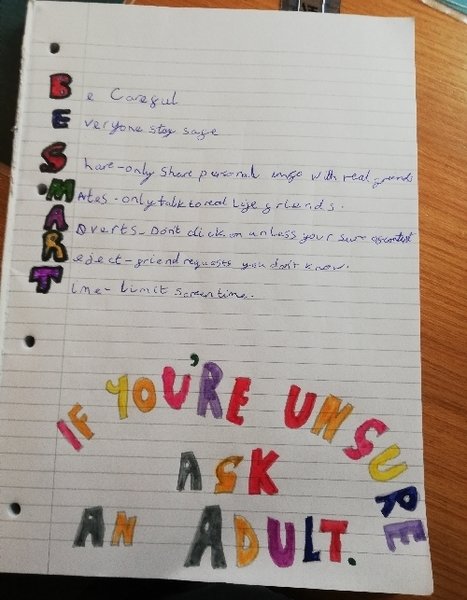 Be Careful
Everyone stay safe
Share - only share personal info with real friends
Mates - only talk to real life friends.
Adverts - Don't click on unless your sure of content
Reject - friend requests you don't know.
Time - Limit screen time.
IF YOU'RE UNSURE
ASK
AN ADULT.